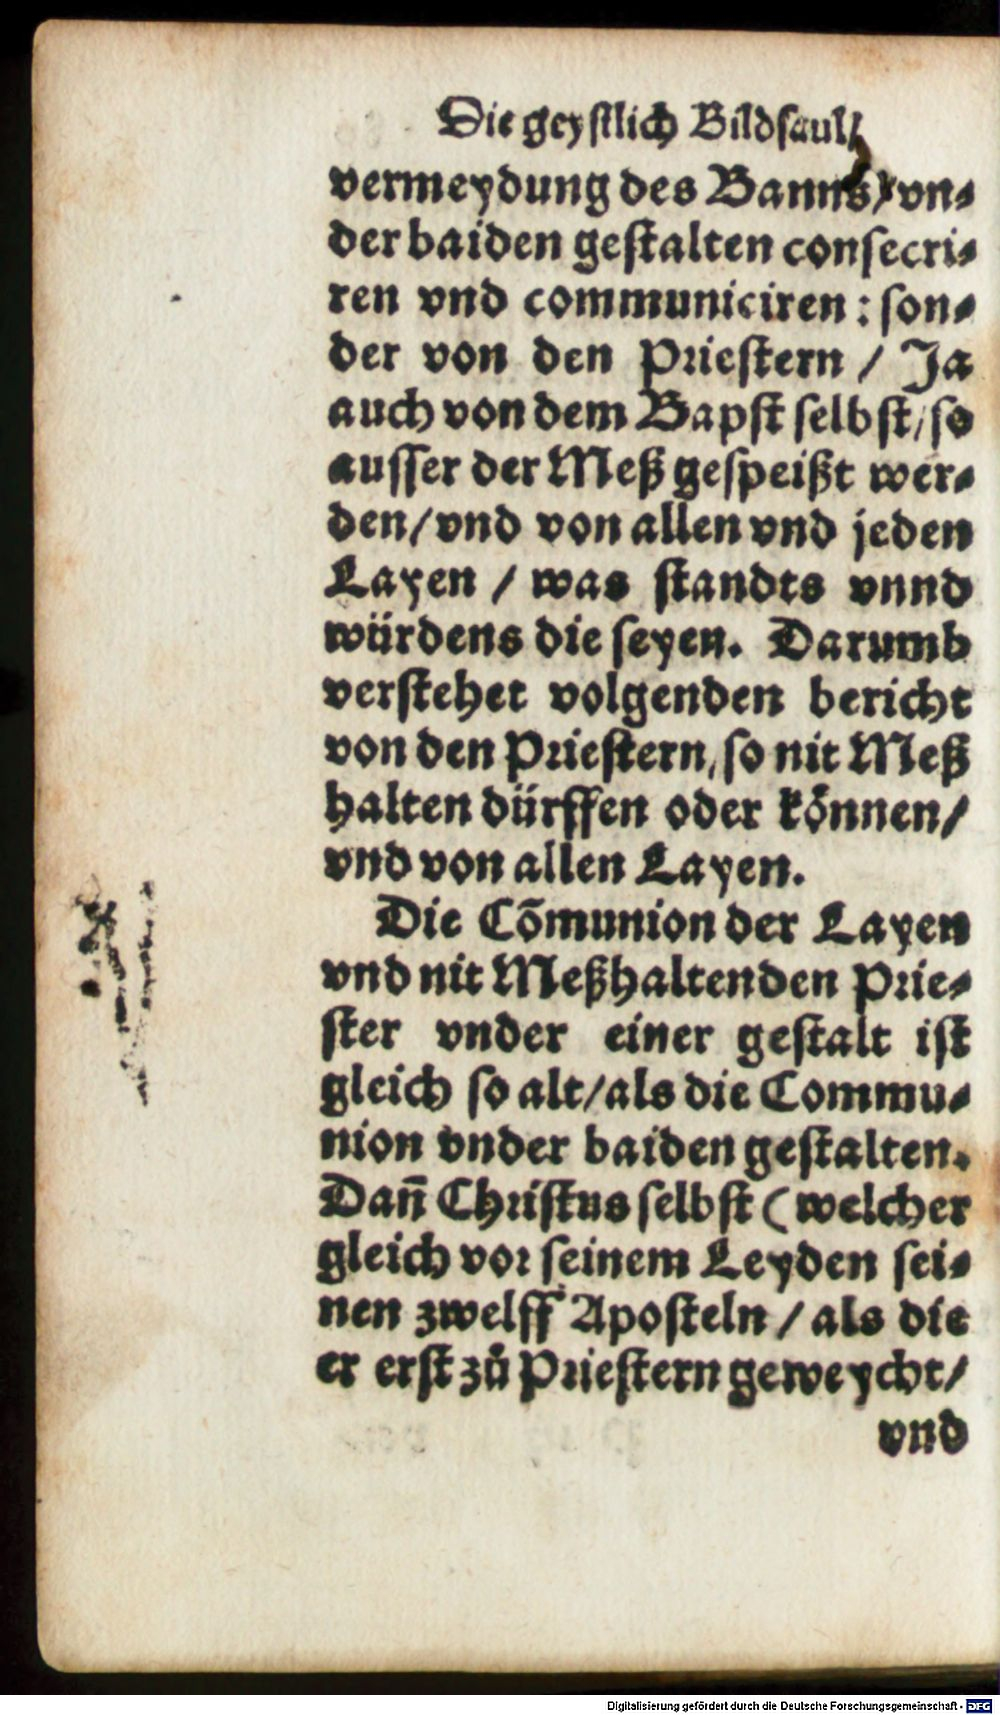 Die geystlich Bildsaul/
vermeydung des Banns/ vn⸗
der baiden gestalten consecri⸗
ren vnd communiciren : son⸗
der von den Priestern / Ja
auch von dem Bapst selbst/ so
ausser der Meß gespeißt wer⸗
den/ vnd von allen vnd jeden
Layen / was standts vnnd
würdens die seyen. Darumb
verstehet volgenden bericht
von den Priestern, so nit Meß
halten dürffen oder koͤnnen/
vnd von allen Layen.
Die Cõmunion der Layen
vnd nit Meßhaltenden Prie⸗
ster vnder einer gestalt ist
gleich so alt/ als die Commu⸗
nion vnder baiden gestalten.
Dañ Christus selbst ( welcher
gleich vor seinem Leyden sei⸗
nen zwelff Aposteln / als die
er erst zů Priestern geweycht/
vnd
Digitalisierung gefördert durch die Deutsche Forschungsgemeinschaft - DFG